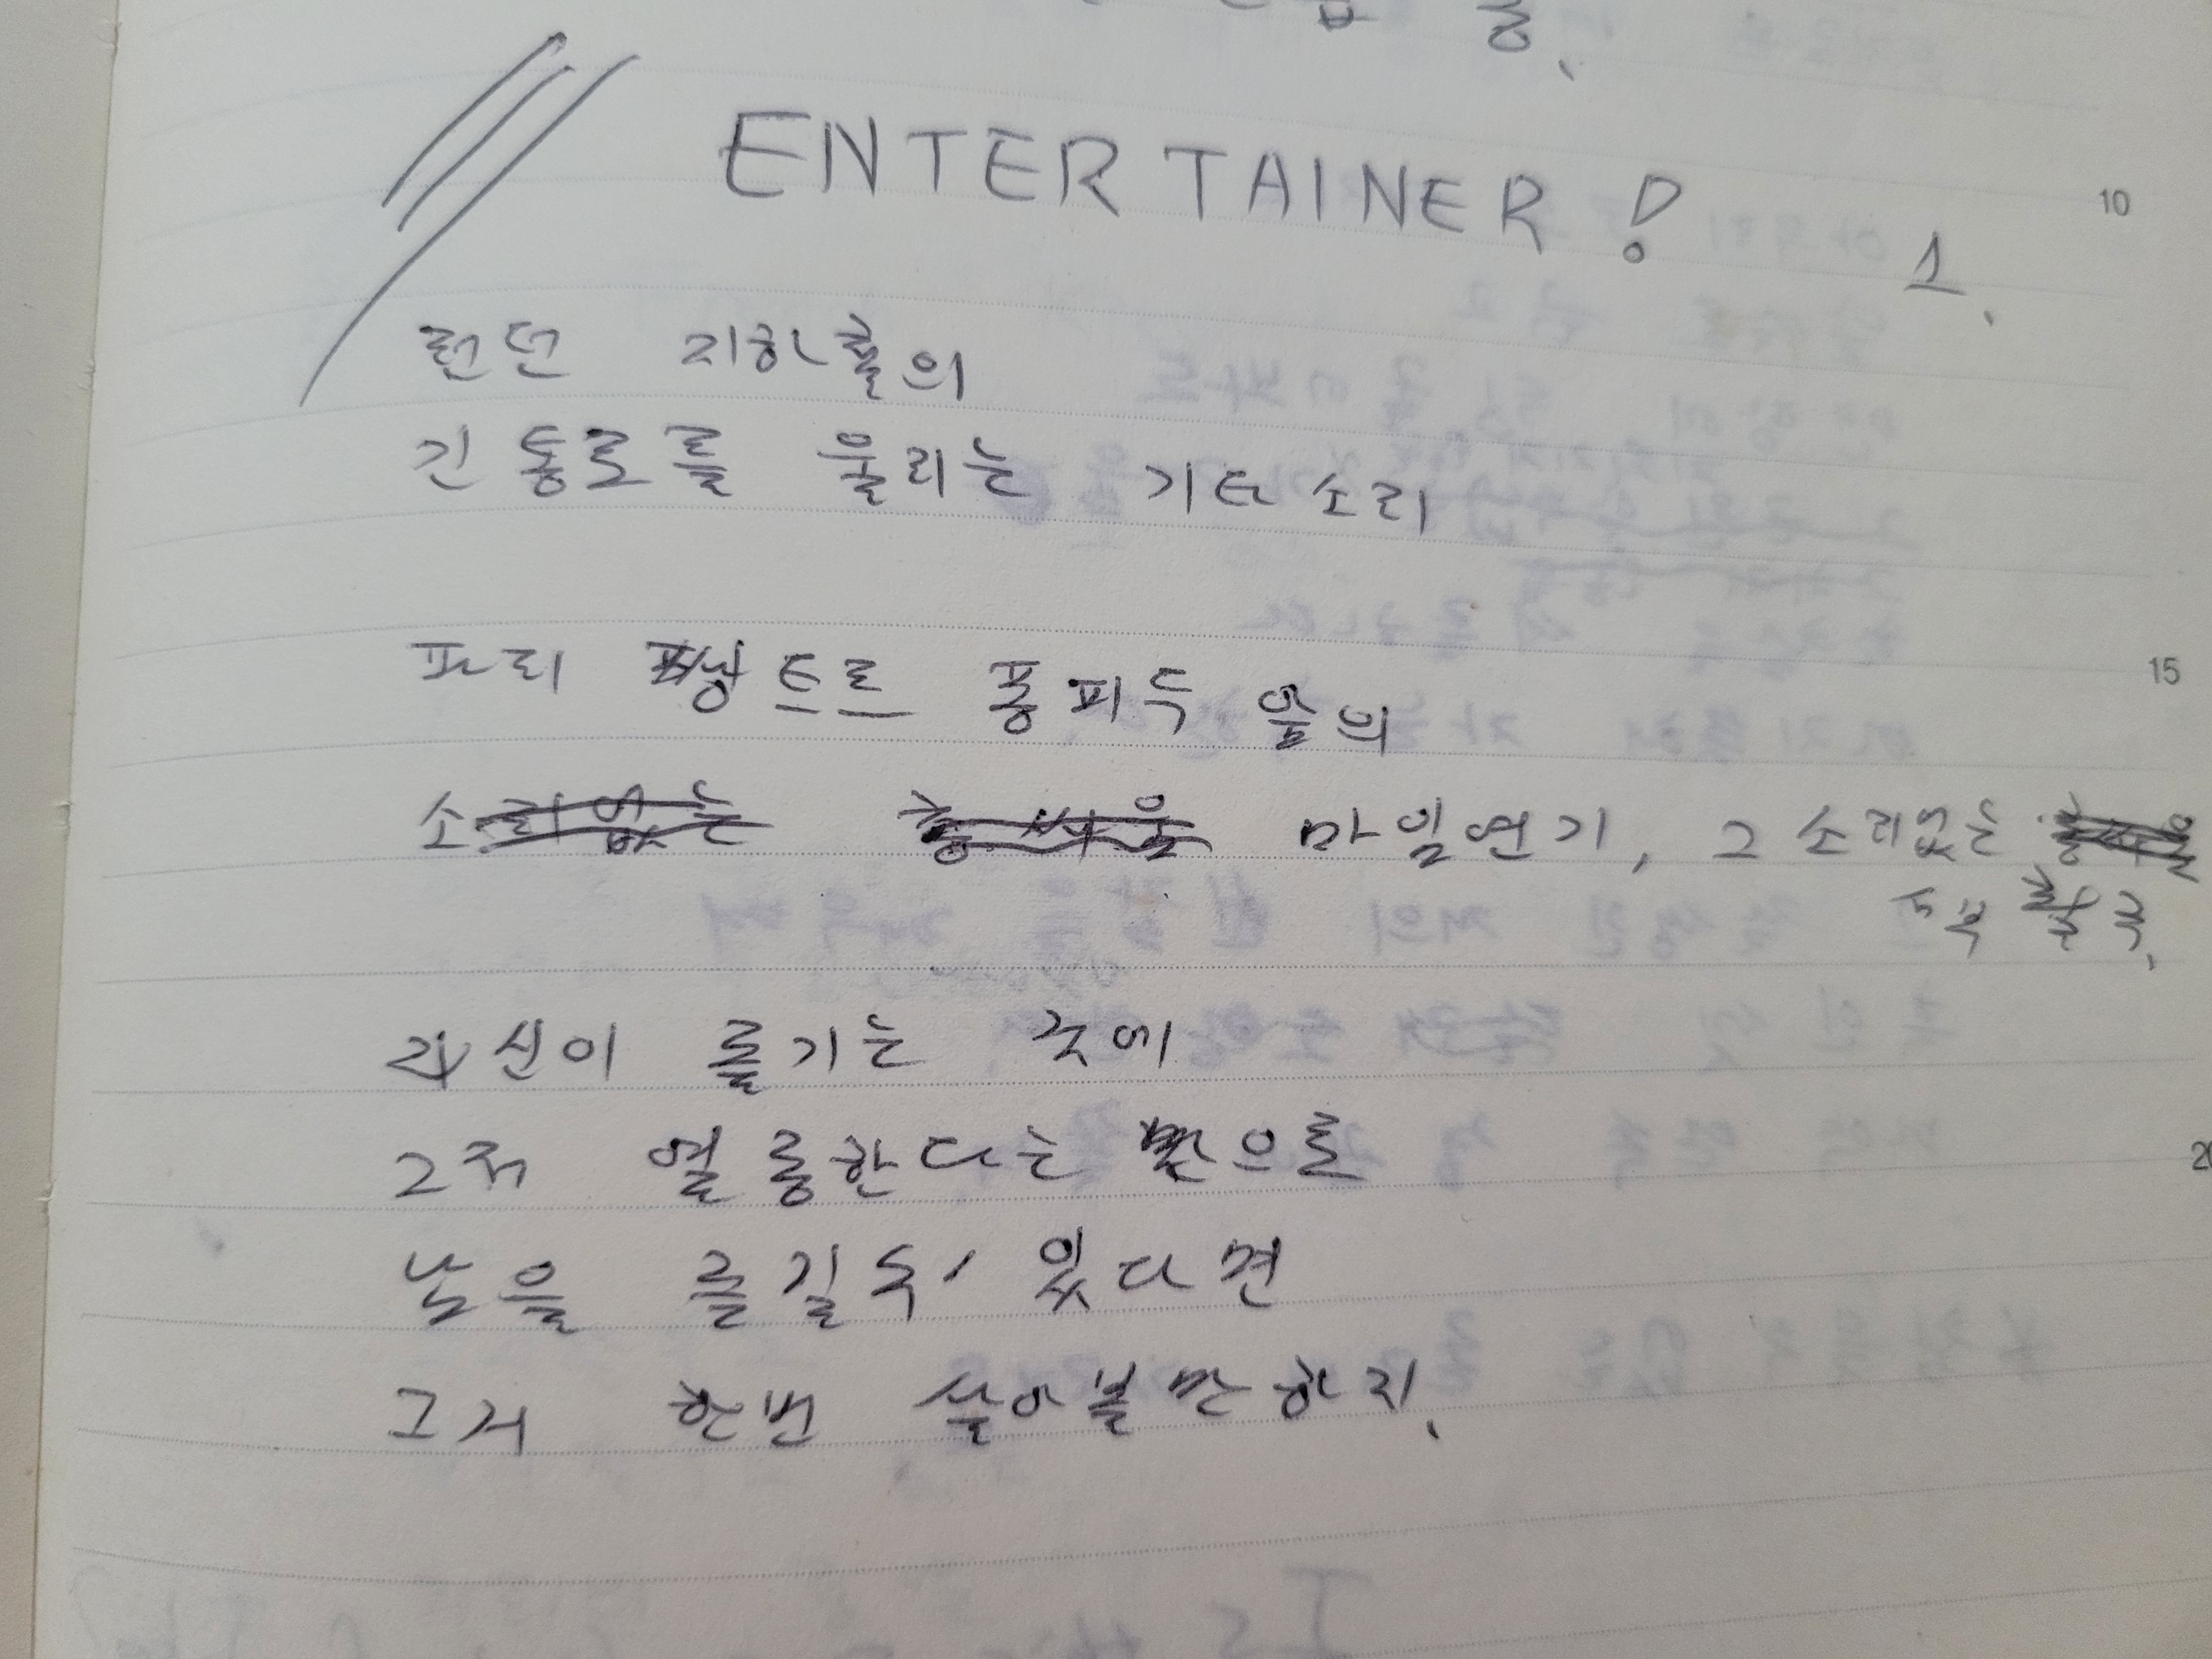 ENTERTAINER!
1.
런던 지하철의
긴 통로를 울리는 기타소리
파리 퐁피두 앞의
마임연기, 그 소리없는
자신이 즐기는 것에
그저 열중한다는 것으로
남을 즐길 수 있다면
그거 한번 살아볼만하지.